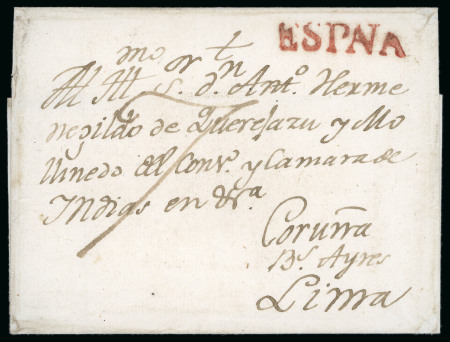 ESPNA
mo or t n
Al Ill S. d. Anto. Herme
negildo de Querejazu y Mo
llinedo del Cons. y Camara de
Indias en &a.
7
Coruña
Bs. Ayres
Lima